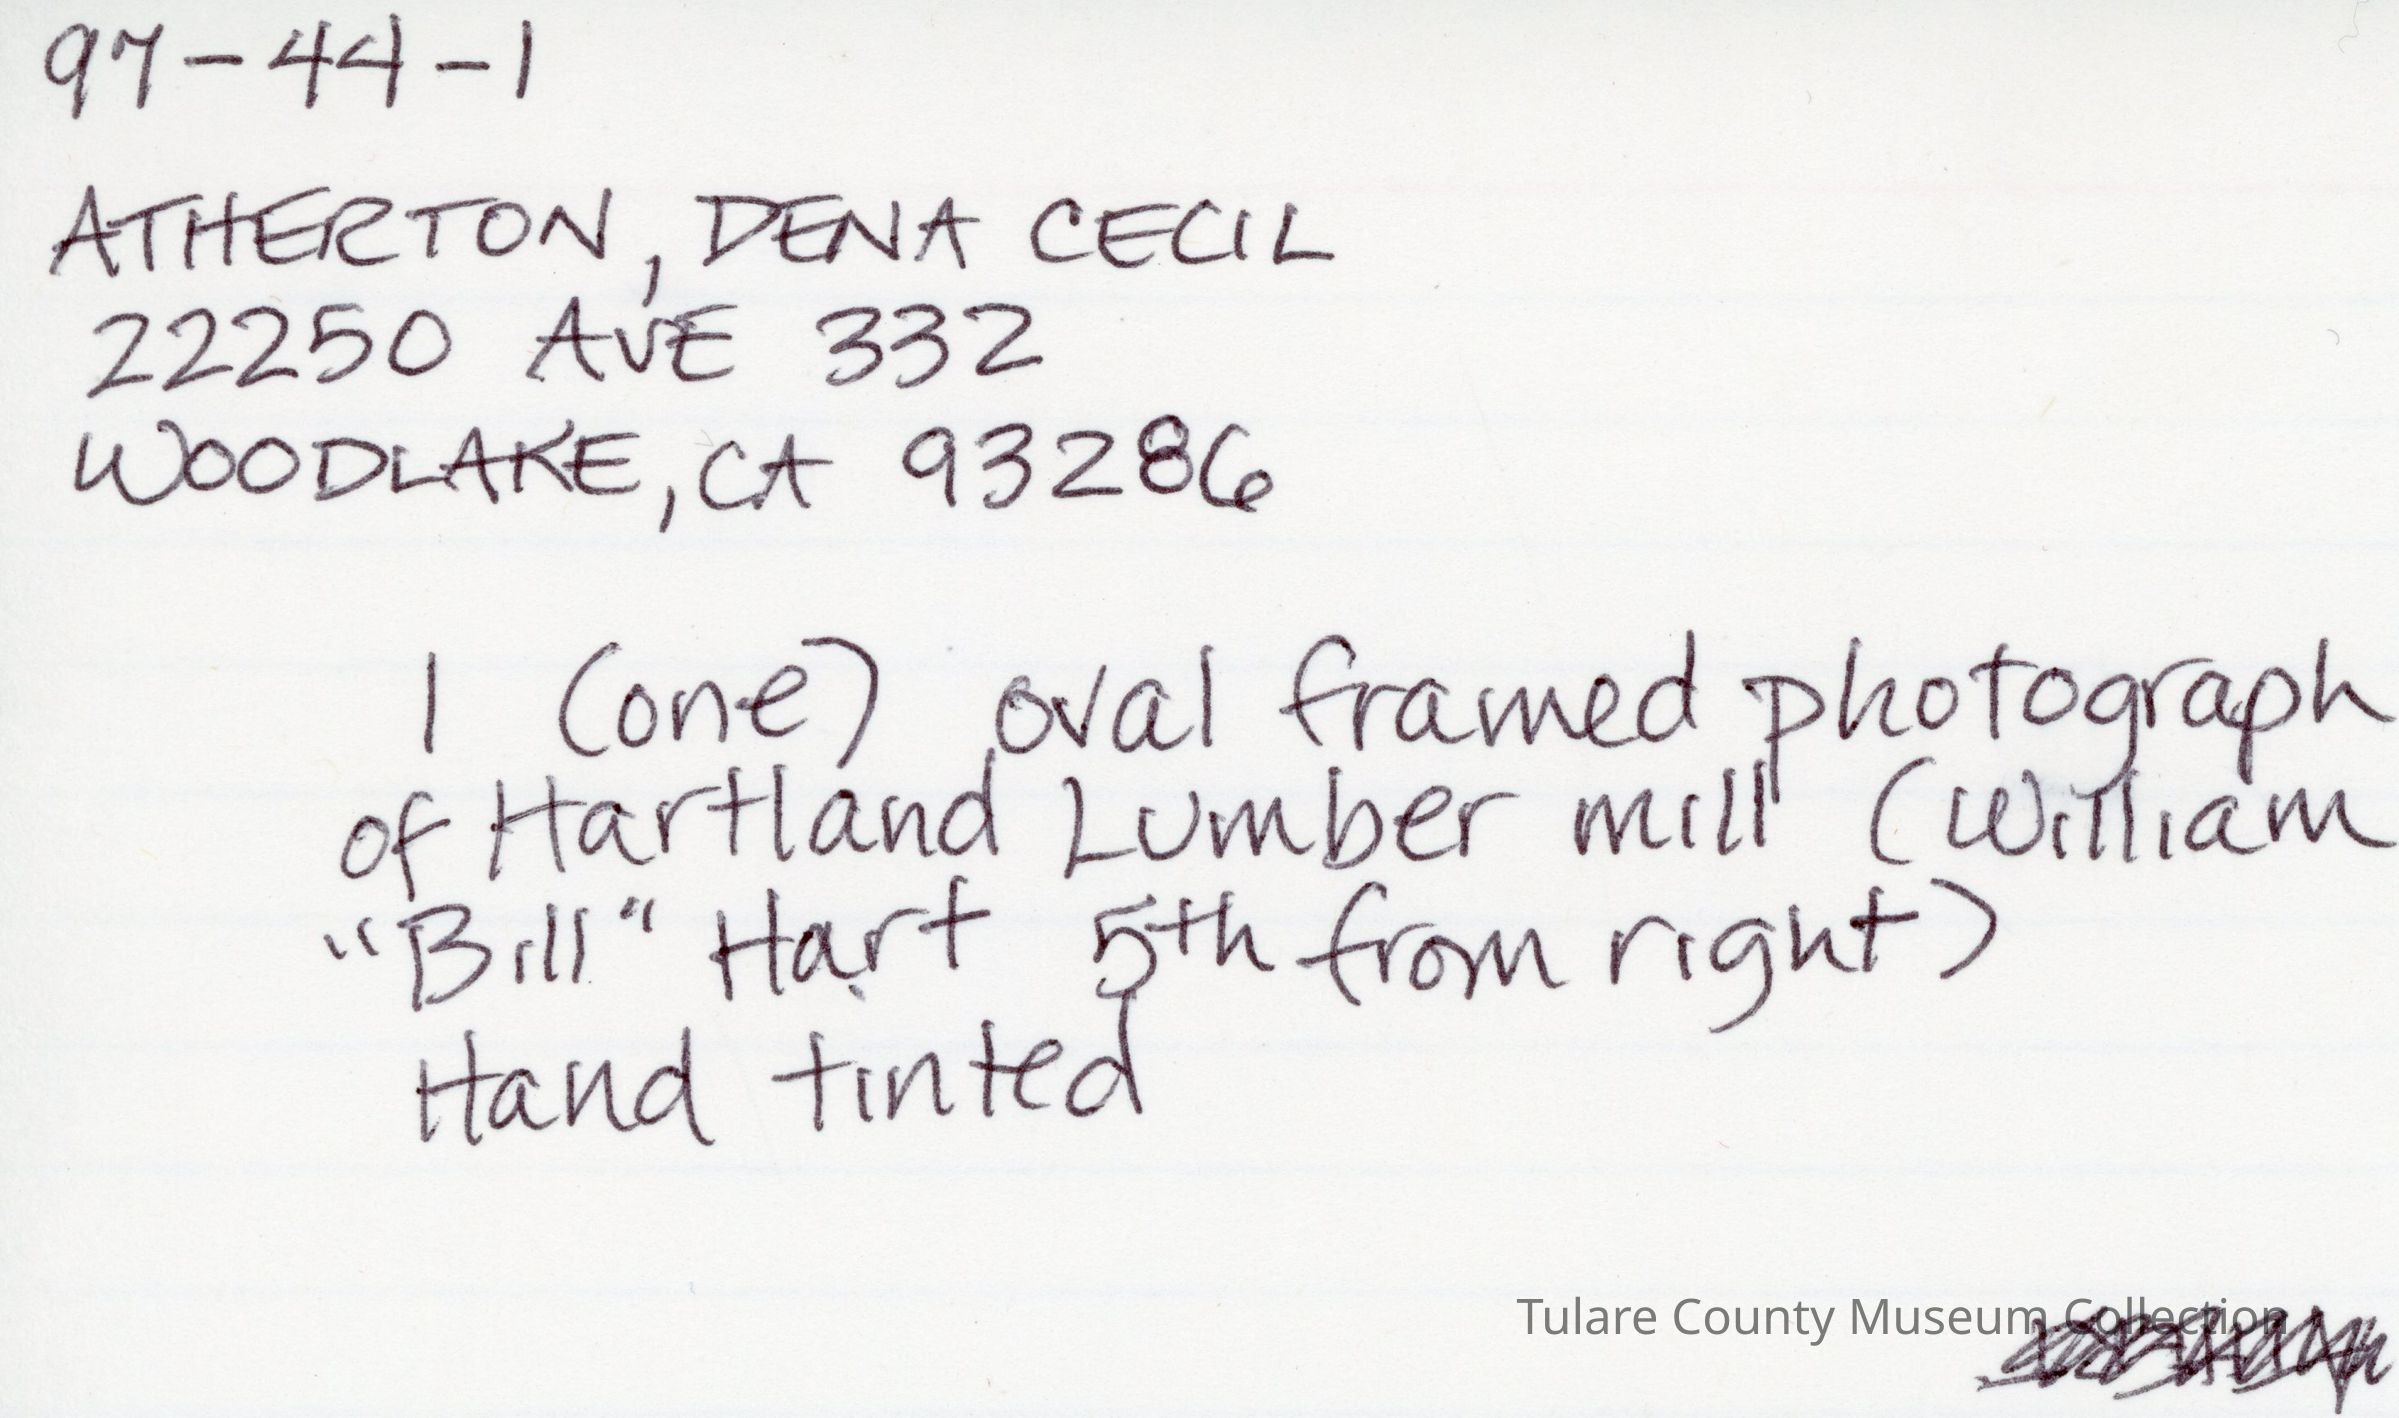 97-44-1
ATHERTON, DENA CECIL
22250 AVE 332
WOODLAKE, CA 93286
1 (one) oval framed photograph
of Hartland Lumber mill (William
"Bill" Hart 5th from right)
Hand tinted
Tulare County Museum Collection